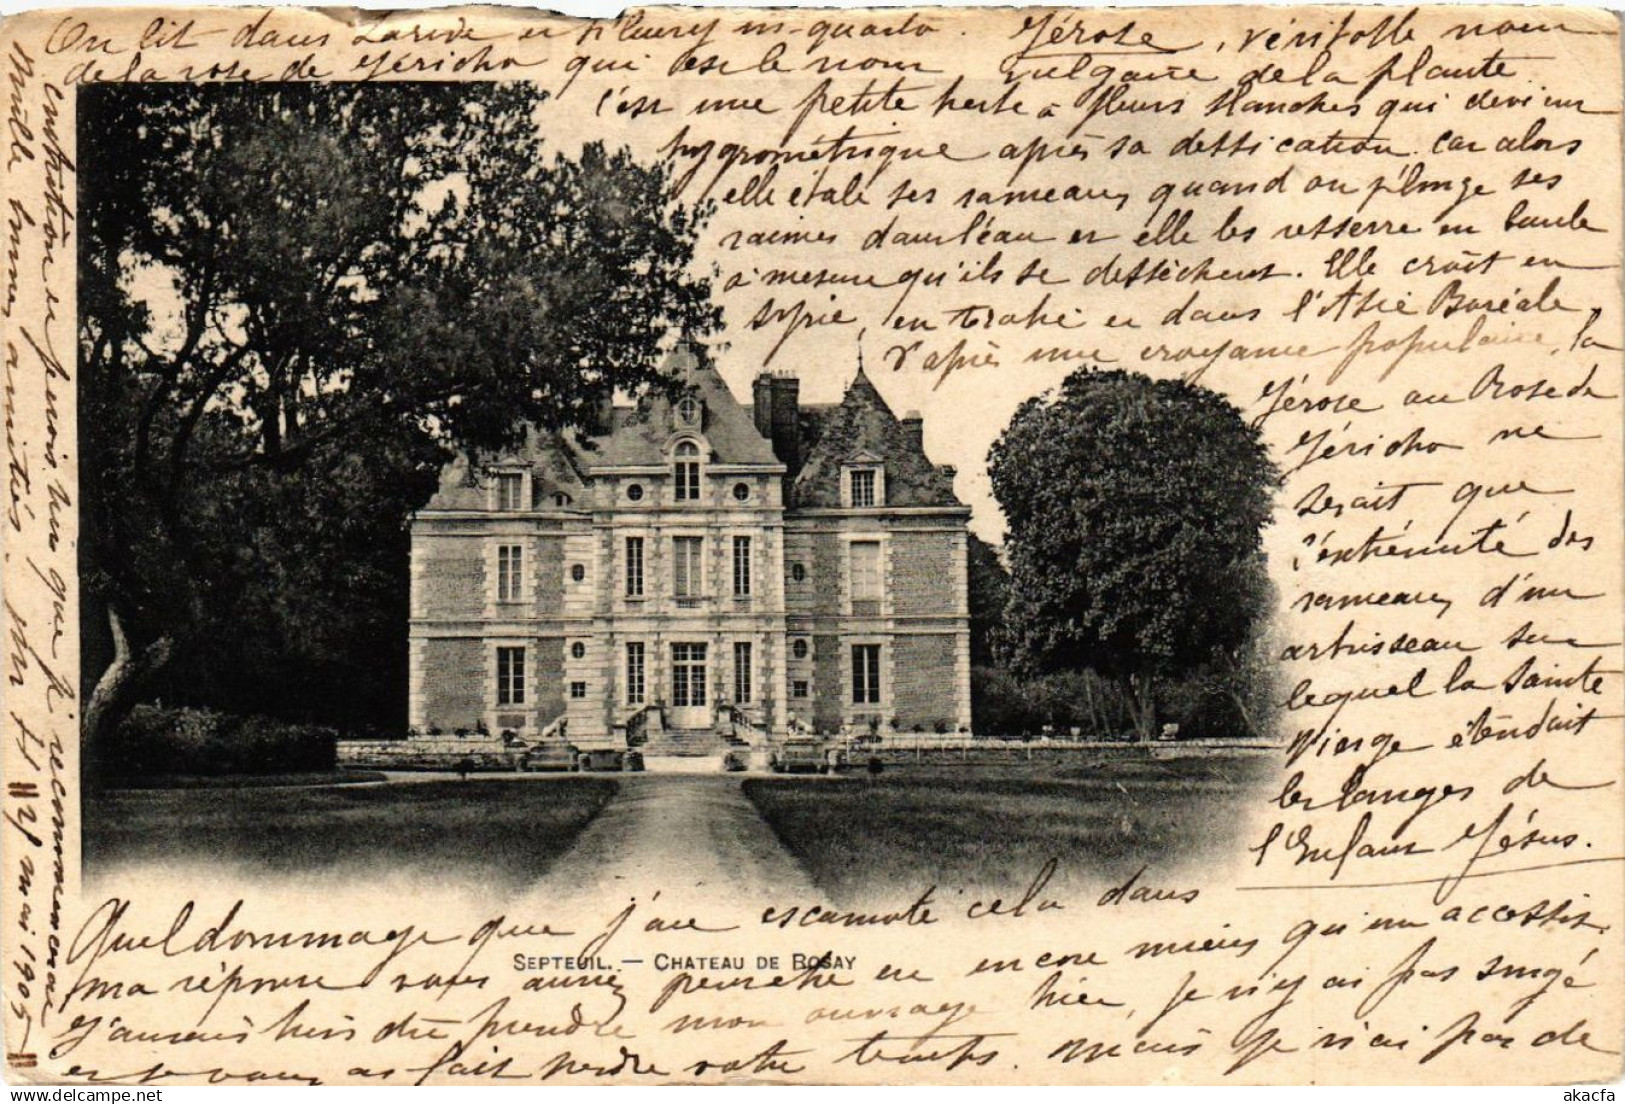 On lit dans Larive et Fleury in-quarto. Jérose, véritable nom
de la rose de Jéricho qui est le nom vulgaire de la plante.
C'est une petite herbe à fleurs blanches qui devient
hygrométrique après sa dessication. Car alors
elle étale ses rameaux quand on plonge ses
racines dans l'eau et elle les resserre en boule
à mesure qu'ils se dessèchent. Elle croît en
Syrie, en Arabie et dans l'Asie Boréale,
D'après une croyance populaire, la
Jérose ou Rose de
Jéricho ne
serait que
l'extrémité des
rameaux d'un
arbrisseau sur
lequel la Sainte
Vierge étendait
les langes de
l'Enfant Jésus.
Quel dommage que j'aie escamoté cela dans
SEPTEUIL. — CHATEAU DE ROSAY
ma réponse vous auriez penché en encore mieux qu'un accessit.
J'aurais bien dû prendre mon ouvrage hier, je n'y ai pas songé
et je vous ai fait perdre votre temps. Mais je n'ai pas de
contrition je perois rien que je recommencerai
Mille bonnes amitiés. H 25 mai 1905
akacfa